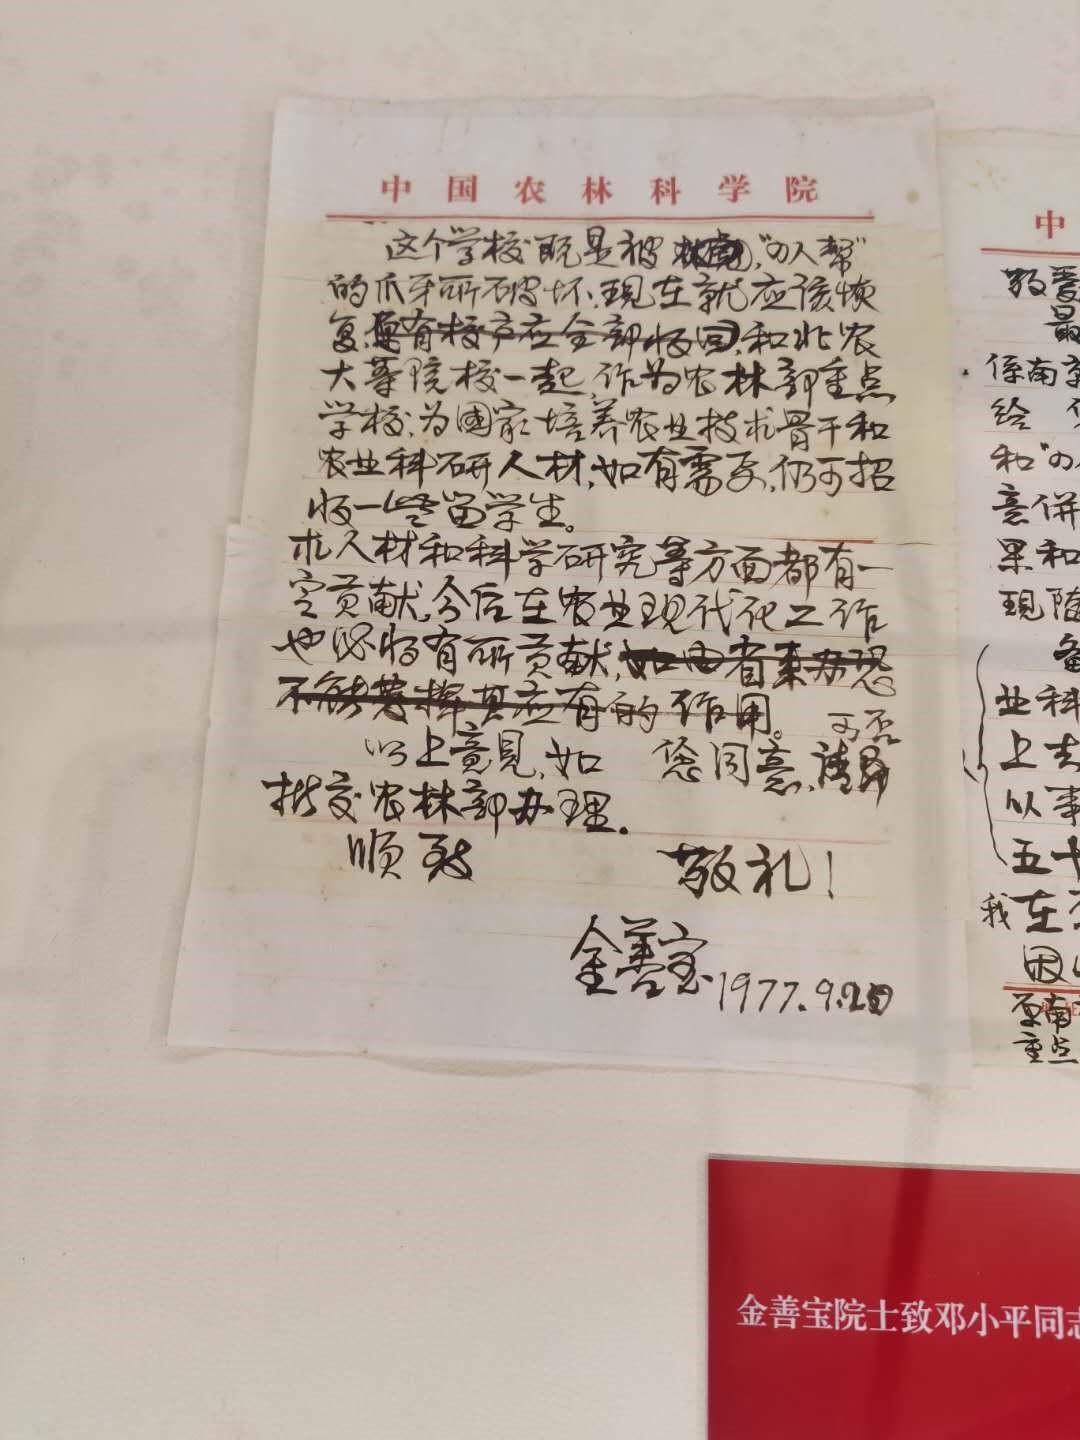 中国农林科学院
这个学校既是被"四人帮"
的爪牙所破坏,现在就应该恢
复,原有校产应全部收回,和北农
大等院校一起,作为农林部重点
学校,为国家培养农业技术骨干和
农业科研人材,如有需要,仍可招
收一些留学生。
术人材和科学研究等方面都有一
定贡献,今后在农业现代化工作
也必将有所贡献,如由省来办恐
不能发挥其应有的作用。
可否
以上意见,如 您同意,请
批交农林部办理。
顺致 敬礼!
金善宝 1977.9.20
中
敬爱
最
係南京
给
和"四
意併
果和
現随
备
业科
上去
以事
五十
我在
因
原南
重点
金善宝院士致邓小平同志